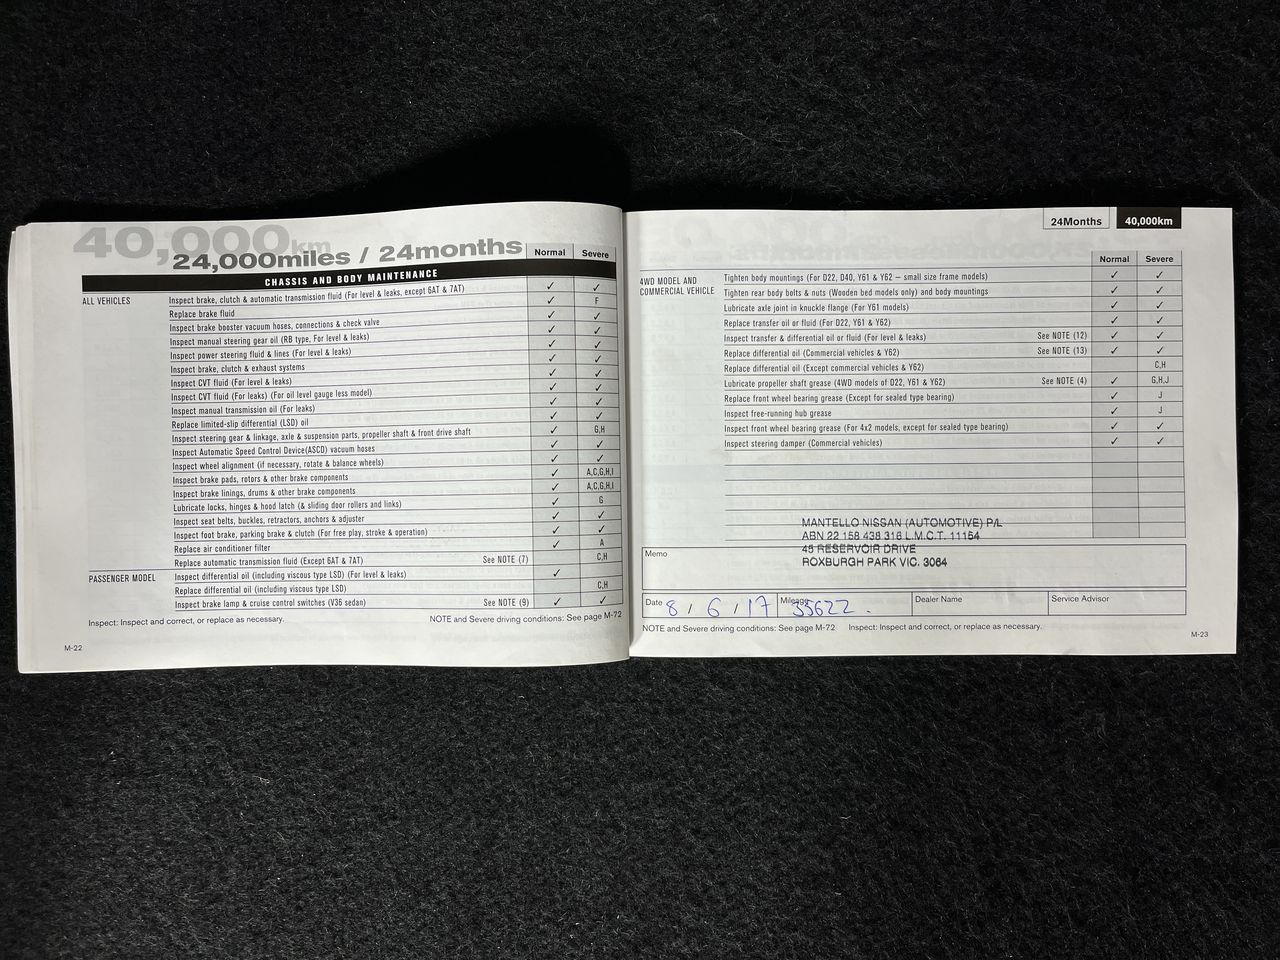 40,000km
24,000miles / 24months
Normal Severe
CHASSIS AND BODY MAINTENANCE
ALL VEHICLES
Inspect brake, clutch & automatic transmission fluid (For level & leaks, except 6AT & 7AT) ✓ ✓
Replace brake fluid ✓ F
Inspect brake booster vacuum hoses, connections & check valve ✓ ✓
Inspect manual steering gear oil (RB type, For level & leaks) ✓ ✓
Inspect power steering fluid & lines (For level & leaks) ✓ ✓
Inspect brake, clutch & exhaust systems ✓ ✓
Inspect CVT fluid (For level & leaks) ✓ ✓
Inspect CVT fluid (For leaks) (For oil level gauge less model) ✓ ✓
Inspect manual transmission oil (For leaks) ✓ ✓
Replace limited-slip differential (LSD) oil ✓ ✓
Inspect steering gear & linkage, axle & suspension parts, propeller shaft & front drive shaft ✓ G,H
Inspect Automatic Speed Control Device(ASCD) vacuum hoses ✓ ✓
Inspect wheel alignment (if necessary, rotate & balance wheels) ✓ ✓
Inspect brake pads, rotors & other brake components ✓ A,C,G,H,I
Inspect brake linings, drums & other brake components ✓ A,C,G,H,I
Lubricate locks, hinges & hood latch (& sliding door rollers and links) ✓ G
Inspect seat belts, buckles, retractors, anchors & adjuster ✓ ✓
Inspect foot brake, parking brake & clutch (For free play, stroke & operation) ✓ ✓
Replace air conditioner filter ✓ A
Replace automatic transmission fluid (Except 6AT & 7AT) See NOTE (7) C,H
PASSENGER MODEL
Inspect differential oil (including viscous type LSD) (For level & leaks) ✓
Replace differential oil (including viscous type LSD) C,H
Inspect brake lamp & cruise control switches (V36 sedan) See NOTE (9) ✓ ✓
Inspect: Inspect and correct, or replace as necessary. NOTE and Severe driving conditions: See page M-72
M-22
24Months 40,000km
Normal Severe
4WD MODEL AND
COMMERCIAL VEHICLE
Tighten body mountings (For D22, D40, Y61 & Y62 – small size frame models) ✓ ✓
Tighten rear body bolts & nuts (Wooden bed models only) and body mountings ✓ ✓
Lubricate axle joint in knuckle flange (For Y61 models) ✓ ✓
Replace transfer oil or fluid (For D22, Y61 & Y62) ✓ ✓
Inspect transfer & differential oil or fluid (For level & leaks) See NOTE (12) ✓ ✓
Replace differential oil (Commercial vehicles & Y62) See NOTE (13) ✓ ✓
Replace differential oil (Except commercial vehicles & Y62) C,H
Lubricate propeller shaft grease (4WD models of D22, Y61 & Y62) See NOTE (4) ✓ G,H,J
Replace front wheel bearing grease (Except for sealed type bearing) ✓ J
Inspect free-running hub grease ✓ J
Inspect front wheel bearing grease (For 4x2 models, except for sealed type bearing) ✓ ✓
Inspect steering damper (Commercial vehicles) ✓ ✓
MANTELLO NISSAN (AUTOMOTIVE) P/L
ABN 22 158 438 316 L.M.C.T. 11154
45 RESERVOIR DRIVE
ROXBURGH PARK VIC. 3064
Memo
Date 8 / 6 / 17 Mileage 35622. Dealer Name Service Advisor
NOTE and Severe driving conditions: See page M-72 Inspect: Inspect and correct, or replace as necessary.
M-23